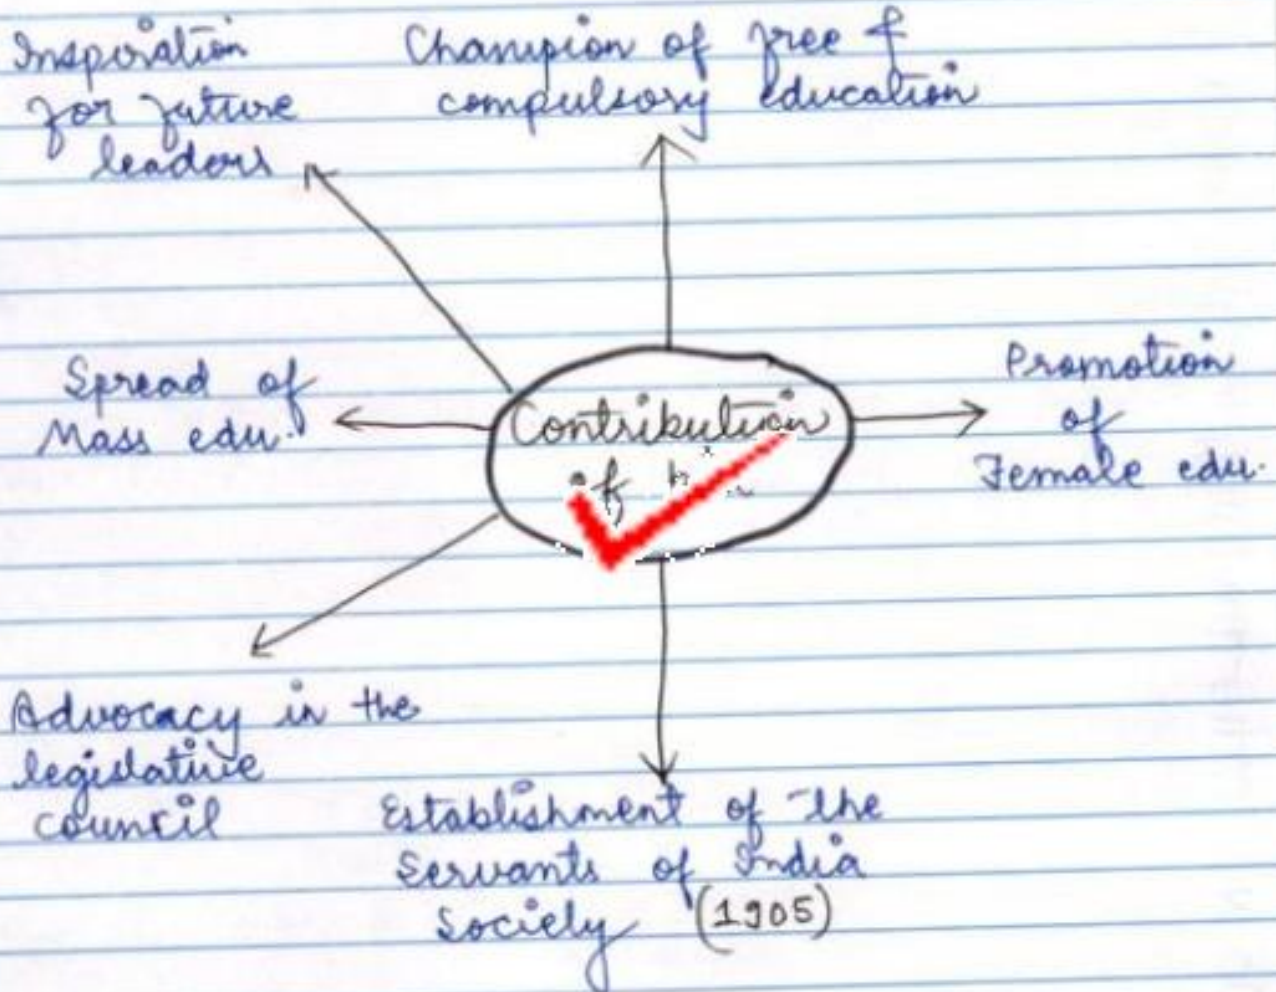 Inspiration
for future
leaders
Champion of free &
compulsory education
Spread of
Mass edu.
Contribution
of
Promotion
of
Female edu.
Advocacy in the
legislative
council
Establishment of the
Servants of India
Society (1905)